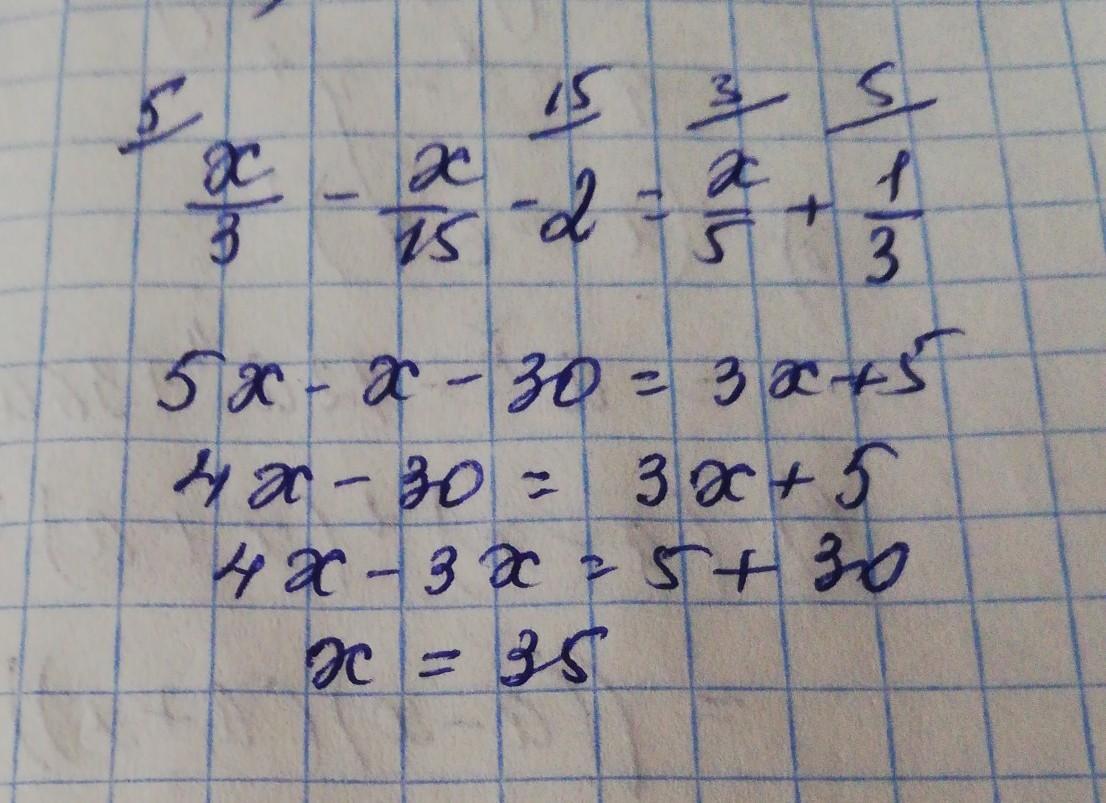 5/ 15/ 3/ 5/
x/3 - x/15 - 2 = x/5 + 1/3
5x - x - 30 = 3x + 5
4x - 30 = 3x + 5
4x - 3x = 5 + 30
x = 35